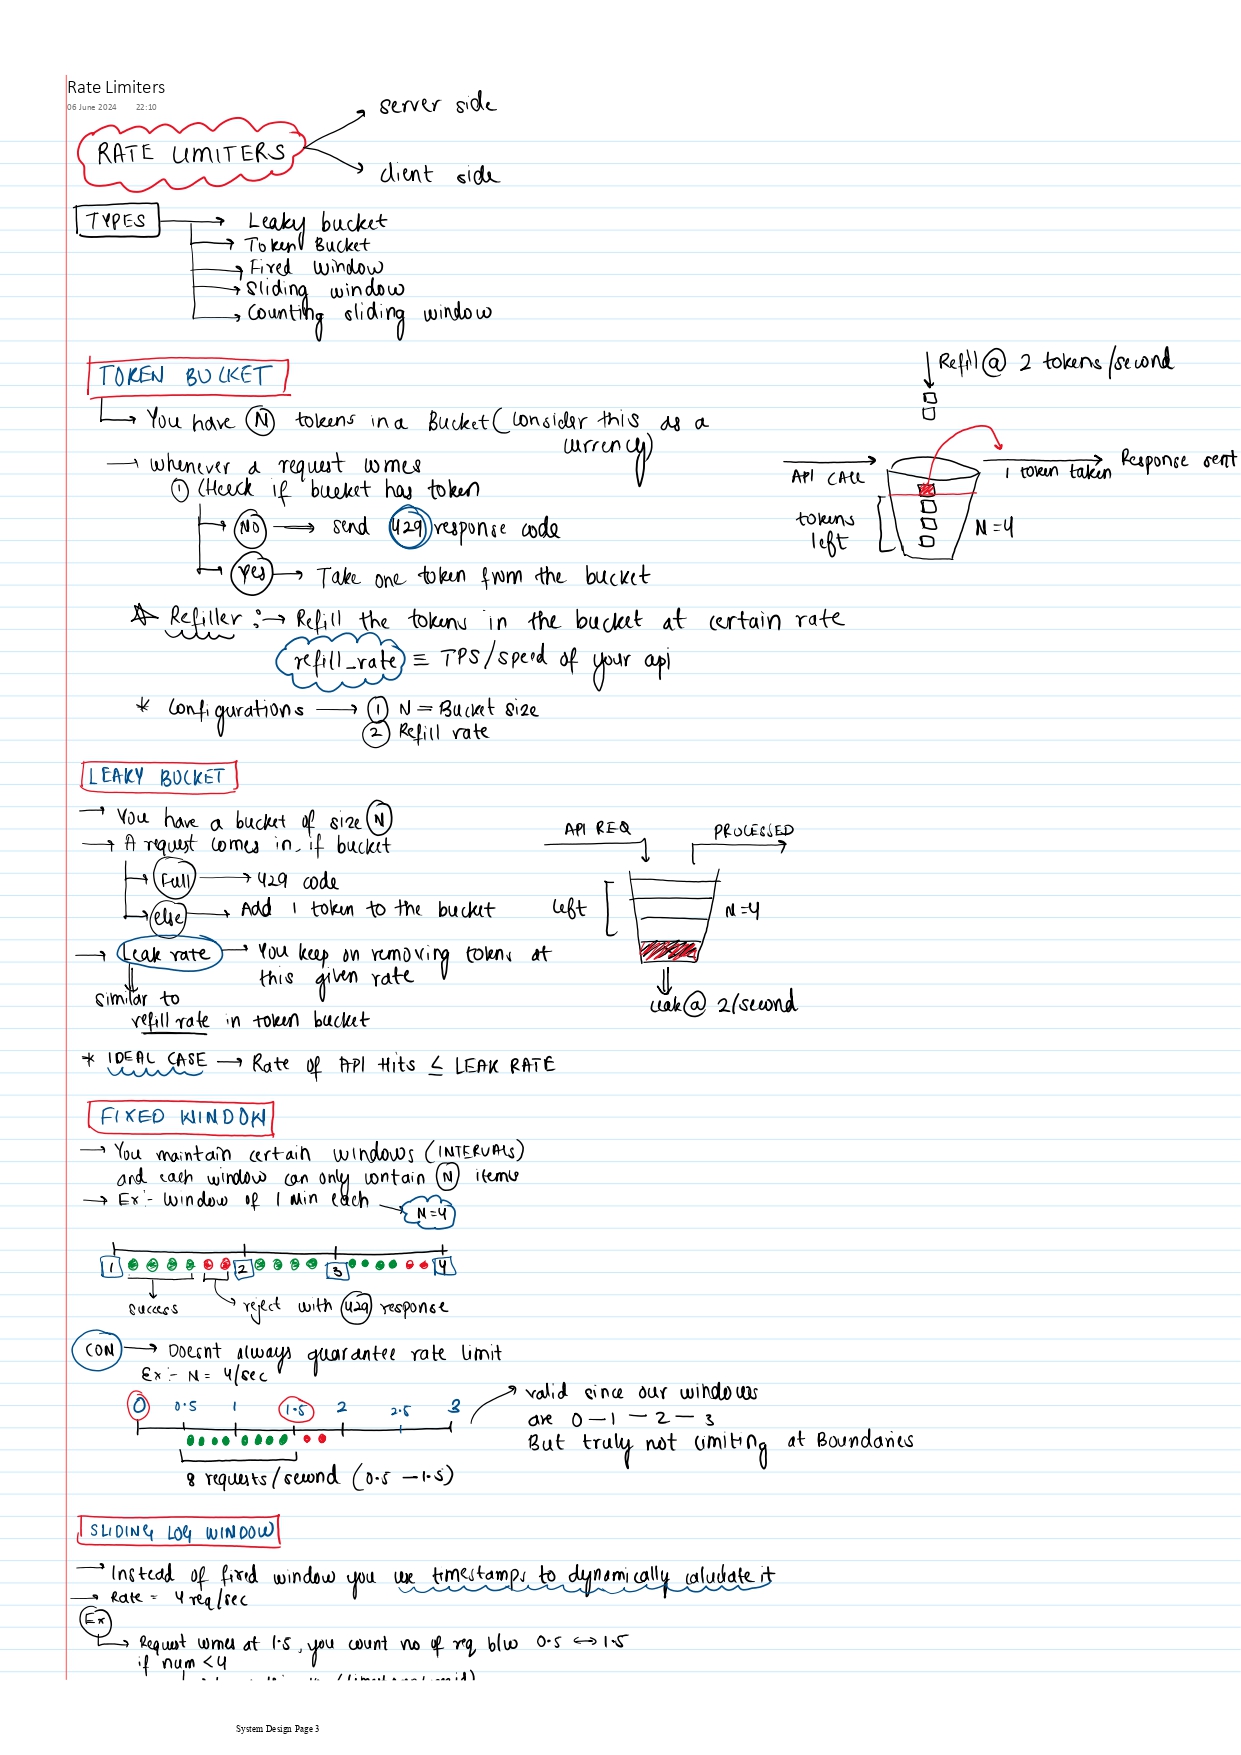 Rate Limiters
06 June 2024 22:10
server side
RATE LIMITERS
client side
TYPES
Leaky bucket
Token Bucket
Fixed window
Sliding window
Counting sliding window
TOKEN BUCKET
You have N tokens in a Bucket (consider this as a
currency)
Whenever a request comes
1 Check if bucket has token
No send 429 response code
Yes Take one token from the bucket
Refiller :→ Refill the tokens in the bucket at certain rate
refill_rate ≡ TPS/speed of your api
* Configurations → 1 N = Bucket size
2 Refill rate
Refill @ 2 tokens/second
API CALL
1 token taken
Response sent
tokens
left
N=4
LEAKY BUCKET
→ You have a bucket of size N
→ A request comes in, if bucket
Full → 429 code
else → Add 1 token to the bucket
→ Leak rate → You keep on removing tokens at
this given rate
similar to
refill rate in token bucket
* IDEAL CASE → Rate of API Hits ≤ LEAK RATE
API REQ
PROCESSED
left
N=4
leak @ 2/second
FIXED WINDOW
→ You maintain certain windows (INTERVALS)
and each window can only contain N items
→ Ex:- Window of 1 Min each
N=4
1 2 3 4
success
reject with 429 response
CON → Doesnt always guarantee rate limit
Ex:- N = 4/sec
0 0.5 1 1.5 2 2.5 3
8 requests/second (0.5 – 1.5)
valid since our windows
are 0 – 1 – 2 – 3
But truly not limiting at Boundaries
SLIDING LOG WINDOW
→ Instead of fixed window you use timestamps to dynamically calculate it
→ Rate = 4 req/sec
Ex
→ Request comes at 1.5, you count no of req b/w 0.5 ↔ 1.5
if num < 4
System Design Page 3